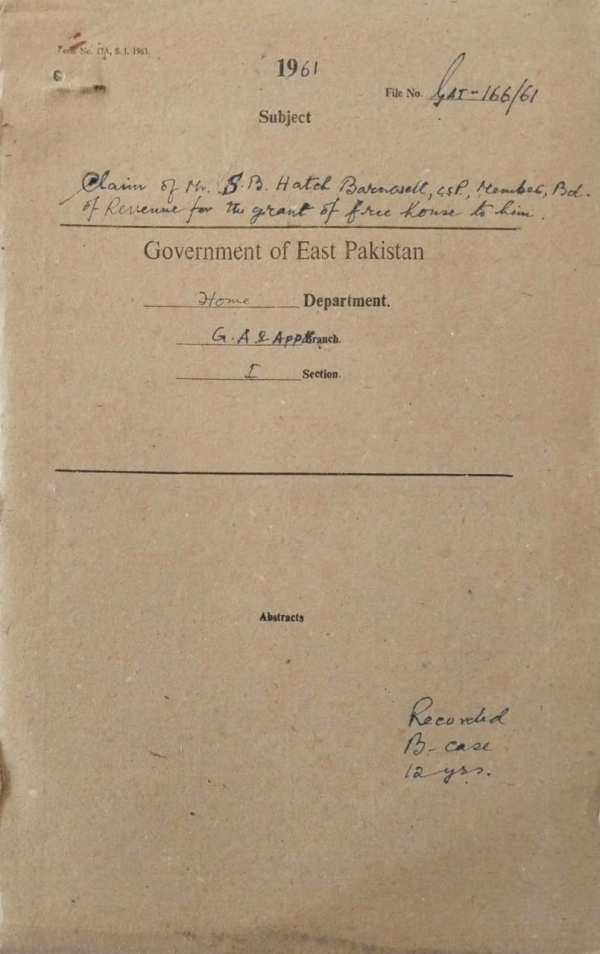 Form No. 17A, S. I. 1963.
G
1961
File No. GAI-166/61
Subject
Claim of Mr. S.B. Hatch Barnwell, CSP, Member, Bd.
of Revenue for the grant of free house to him.
Government of East Pakistan
Home Department.
G.A & Appt Branch.
I Section.
Abstracts
Recorded
B-case
12 yrs.